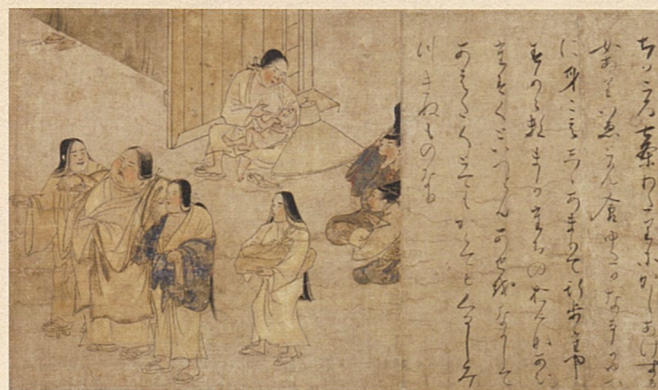 ちかころ七条わたりにかしあけす
女あり家とみ食ゆたかなるか
に身こえしゝあまりて行歩たや
すからすまかたちの女あひ
たすくといへともあせをなかして
とてもかくてもくるしみ
つきぬものなり